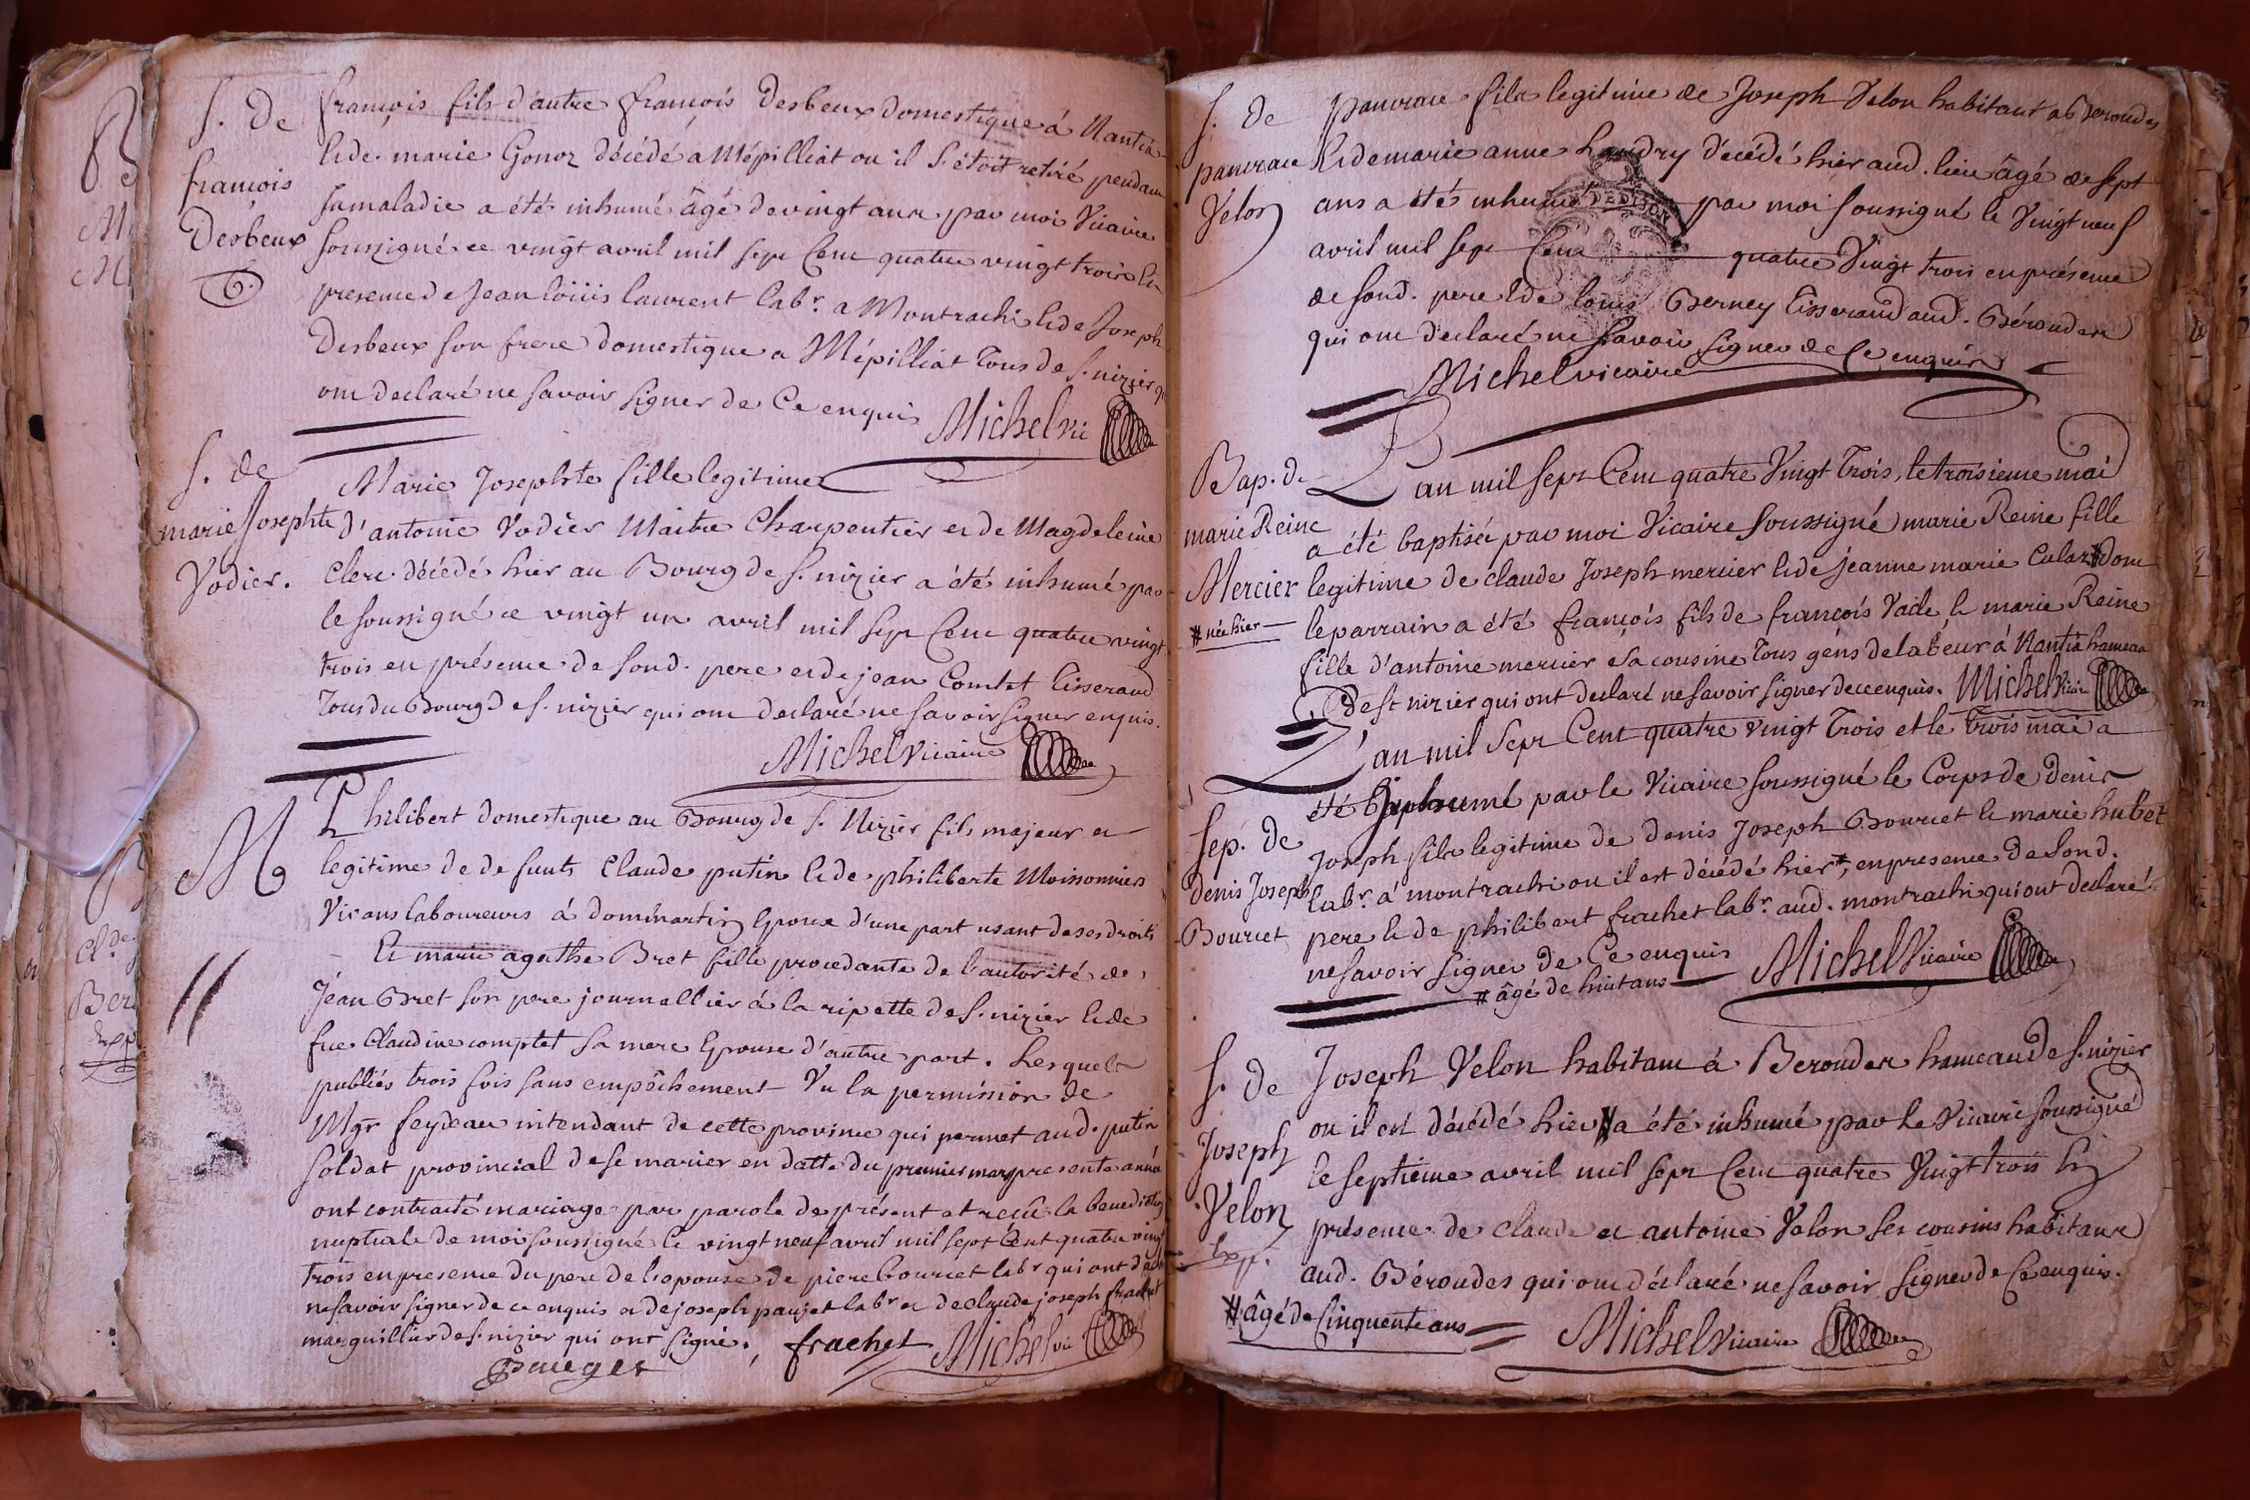 S. De
françois
Desbeux
françois fils d'autre françois Desbeux domestique à Nantia
et de marie Gonoz décédé a Mépilliat ou il s'étoit retiré pendant
sa maladie a été inhumé âgé de vingt ans par moi Vicaire
soussigné ce vingt avril mil sept Cent quatre vingt trois en
presence de Jean loüis laurent labr. a Montrachi et de Joseph
Desbeux son frere domestique a Mépilliat tous de S. nizier qui
ont declaré ne savoir signer de Ce enquis Michel vic
S. de
marie Josephte
Vodier.
Marie Josephte fille legitime
d'antoine Vodier Maitre Charpentier et de Magdeleine
Clerc décédé hier au Bourg de S. nizier a été inhumé par
le soussigné ce vingt un avril mil sept Cent quatre vingt
trois en présence de sond. pere et de jean Comtet tisserand
Tous du Bourg de S. nizier qui ont declaré ne savoir signer enquis.
Michel Vicaire
M
Philibert domestique au Bourg de S. Nizier fils majeur et
legitime de defunts Claude putin et de philiberte Moissonnier
Vivans laboureurs à domimartin Epoux d'une part usant de ses droits
Et marie agathe Bret fille procedante de l'autorité de
Jean Bret son pere journallier à la ripette de S. nizier et de
fue. Claudine comptet sa mere Epouse d'autre part. Lesquels
publiés trois fois sans empêchement Vu la permission de
Mgr feydeau intendant de cette province qui permet aud. putin
soldat provincial de se marier en datte du premier mars presente année
ont contracté mariage par parole de présent et reçû la benediction
nuptiale de moi soussigné le vingt neuf avril mil sept Cent quatre vingt
trois en presence du pere de l'epouse de piere bourcet labr qui ont déclaré
ne savoir signer de ce enquis et de joseph paujet labr et de claude joseph frachet
marguillier de S. nizier qui ont signé. frachet Michel vic
Pauget
S. de
pancrace
Velon
pancrace fils legitime de Joseph Velon habitant a Beroudes
et de marie anne Landry décédé hier aud. lieu âgé de sept
ans a été inhumé par moi soussigné le Vingt neuf
DE DIJON
avril mil sept Cent quatre Vingt trois en présence
de sond. pere et de louis Berney tisserand aud. Béroudes
qui ont declaré ne savoir signer de Ce enquis
Michel vicaire
Bap. de
marie Reine
Mercier
# née hier
L'an mil sept Cent quatre Vingt Trois, le troisieme mai
a été baptisée par moi Vicaire soussigné marie Reine fille
legitime de claude Joseph mercier et de jeanne marie Calas # dont
le parrain a été françois fils de françois Vade et marie Reine
fille d'antoine mercier sa cousine Tous géns de labeur à Nantia hameau
de st nizier qui ont declaré ne savoir signer de ce enquis. Michel Vicaire
Sep. de
denis Joseph
Bourcet
L'an mil Sept Cent quatre vingt Trois et le trois mai a
été inhumé par le Vicaire soussigné le Corps de denis
Joseph fils legitime de denis Joseph Bourcet et marie hubet
labr. à montrachi ou il est décédé hier #, en presence de sond.
pere et de philibert frachet labr. aud. montrachi qui ont declaré
ne savoir signer de Ce enquis Michel Vicaire
# âgé de huit ans
S. de
Joseph
Velon
Exp.
Joseph Velon habitant à Beroudes hameau de S. nizier
ou il est décédé hier # a été inhumé par le Vicaire soussigné
le septieme avril mil sept Cent quatre Vingt trois En
présence de claude et antoine Velon ses cousins habitans
aud. Béroudes qui ont déclaré ne savoir signer de Ce enquis.
# âgé de Cinquante ans
Michel Vicaire